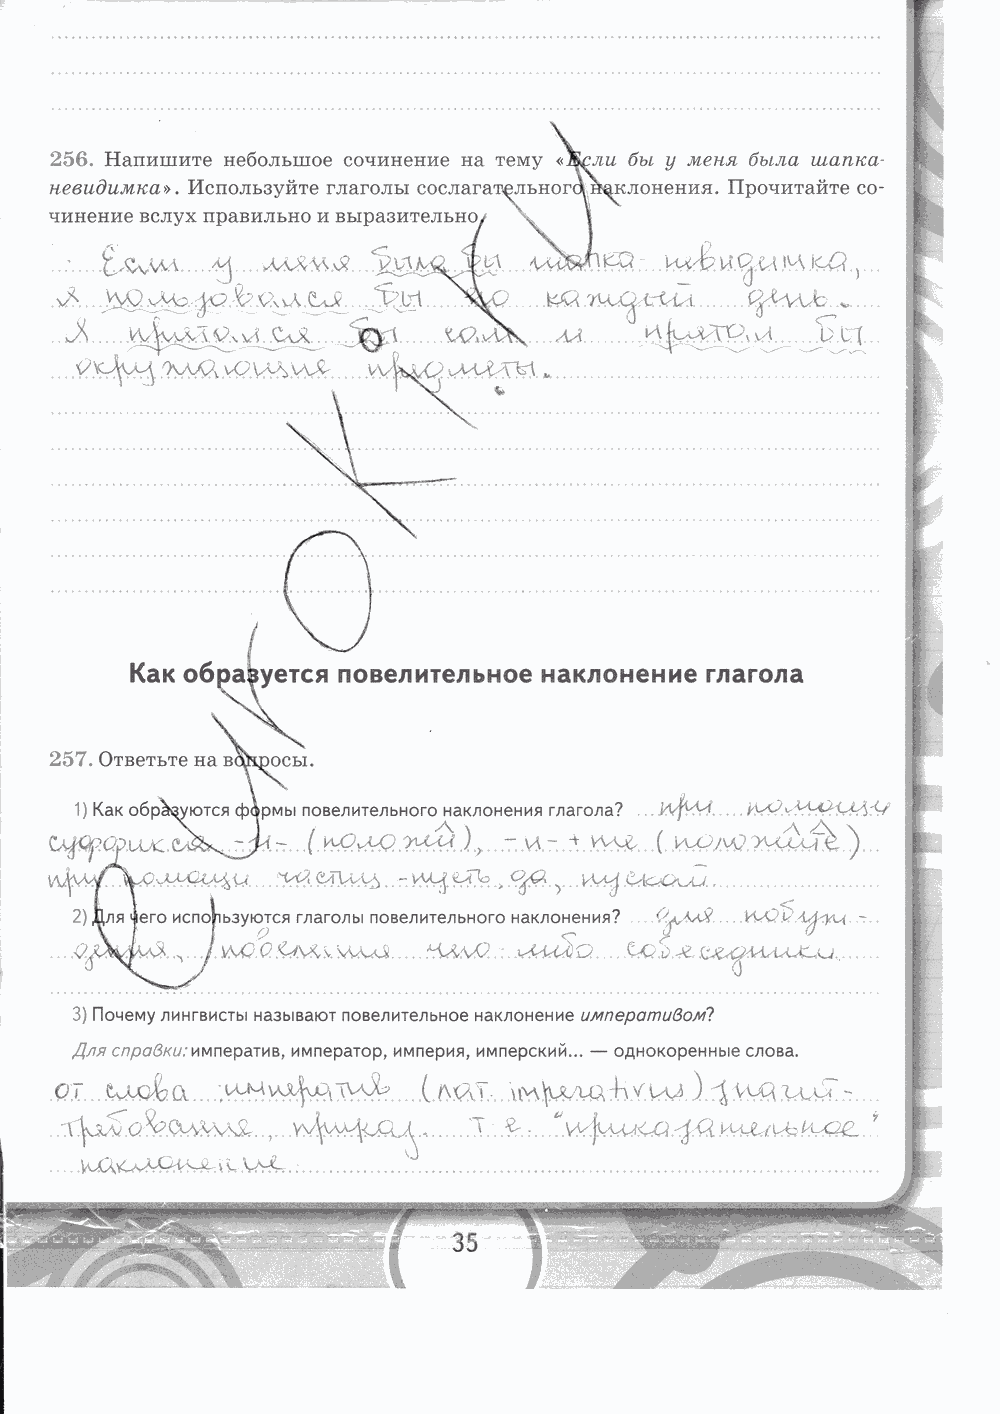 256. Напишите небольшое сочинение на тему «Если бы у меня была шапка-
невидимка». Используйте глаголы сослагательного наклонения. Прочитайте со-
чинение вслух правильно и выразительно.
Если у меня была бы шапка-невидимка,
я пользовался бы ею каждый день.
Я прятался бы сам и прятал бы
окружающие предметы.
Как образуется повелительное наклонение глагола
257. Ответьте на вопросы.
1) Как образуются формы повелительного наклонения глагола? при помощи
суффикса -и- (положи), -и- + те (положите)
при помощи частиц -пусть, да, пускай.
2) Для чего используются глаголы повелительного наклонения? для побуж-
дения, повеления чего-либо собеседники
3) Почему лингвисты называют повелительное наклонение императивом?
Для справки: императив, император, империя, имперский... — однокоренные слова.
от слова императив (лат. imperativus) значит-
требование, приказ. т.е. "приказательное"
наклонение
35
еuroки.ru